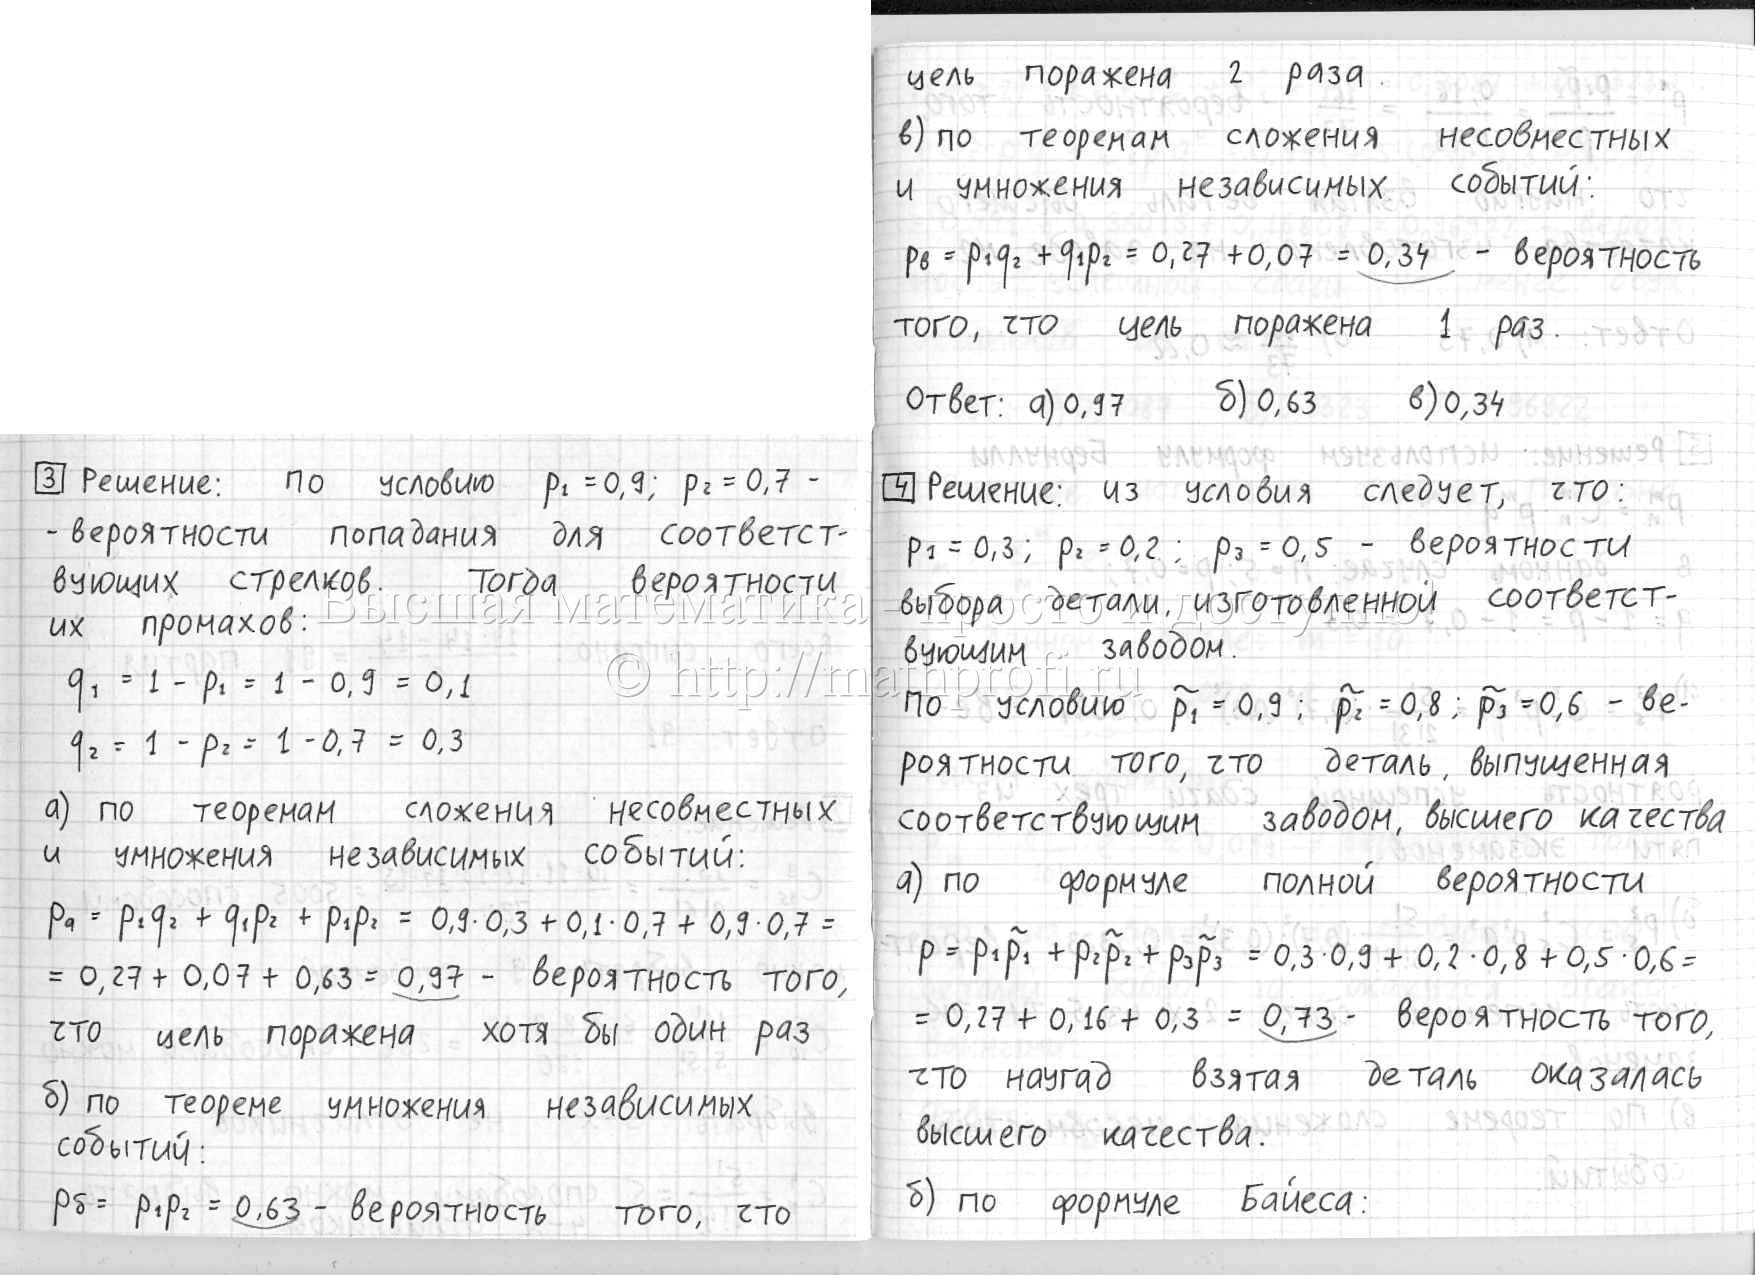 3 Решение: по условию p₁ = 0,9; p₂ = 0,7 -
- вероятности попадания для соответст-
вующих стрелков. Тогда вероятности
их промахов:
q₁ = 1 - p₁ = 1 - 0,9 = 0,1
q₂ = 1 - p₂ = 1 - 0,7 = 0,3
а) по теоремам сложения несовместных
и умножения независимых событий:
pа = p₁q₂ + q₁p₂ + p₁p₂ = 0,9·0,3 + 0,1·0,7 + 0,9·0,7 =
= 0,27 + 0,07 + 0,63 = 0,97 - вероятность того,
что цель поражена хотя бы один раз
б) по теореме умножения независимых
событий:
pб = p₁p₂ = 0,63 - вероятность того, что
цель поражена 2 раза.
в) по теоремам сложения несовместных
и умножения независимых событий:
pв = p₁q₂ + q₁p₂ = 0,27 + 0,07 = 0,34 - вероятность
того, что цель поражена 1 раз.
Ответ: а) 0,97 б) 0,63 в) 0,34
4 Решение: из условия следует, что:
p₁ = 0,3; p₂ = 0,2; p₃ = 0,5 - вероятности
выбора детали, изготовленной соответст-
вующим заводом.
По условию p̃₁ = 0,9; p̃₂ = 0,8; p̃₃ = 0,6 - ве-
роятности того, что деталь, выпущенная
соответствующим заводом, высшего качества
а) по формуле полной вероятности
p = p₁p̃₁ + p₂p̃₂ + p₃p̃₃ = 0,3·0,9 + 0,2·0,8 + 0,5·0,6 =
= 0,27 + 0,16 + 0,3 = 0,73 - вероятность того,
что наугад взятая деталь оказалась
высшего качества.
б) по формуле Байеса:
Высшая математика – просто и доступно!
© http://mathprofi.ru